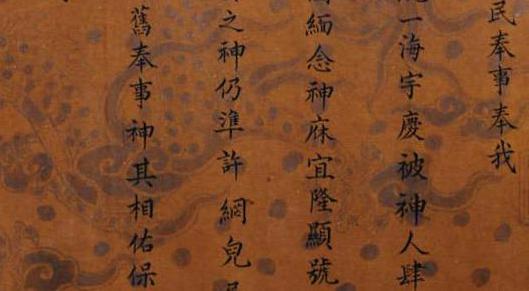 民奉事奉我
一海宇慶被神人肆
緬念神庥宜隆顯號
之神仍準許網兒
舊奉事神其相佑保